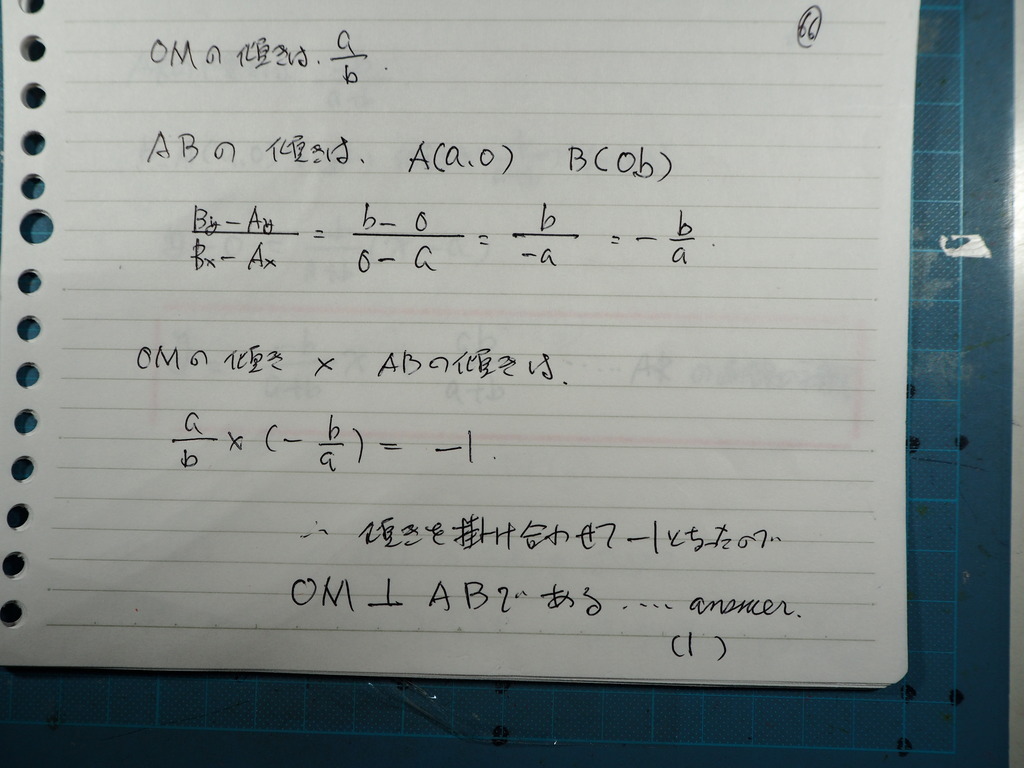 66
OMの傾きは、a/b.
ABの傾きは、 A(a,0) B(0,b)
(By-Ay)/(Bx-Ax) = (b-0)/(0-a) = b/-a = -b/a.
OMの傾き × ABの傾きは、
a/b × (-b/a) = -1.
∴ 傾きを掛け合わせて-1となったので
OM⊥ABである ‥‥ answer.
(1)